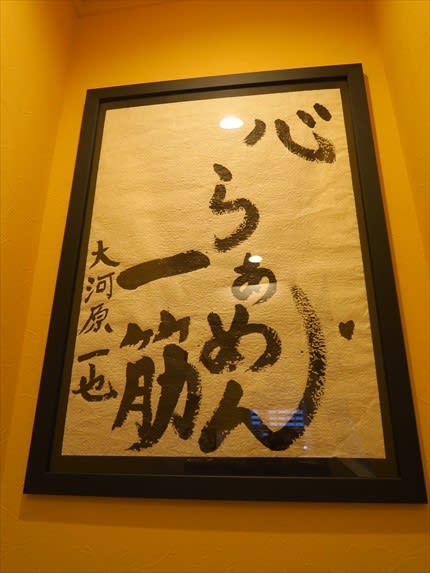 心
らぁめん
一筋
大河原一也